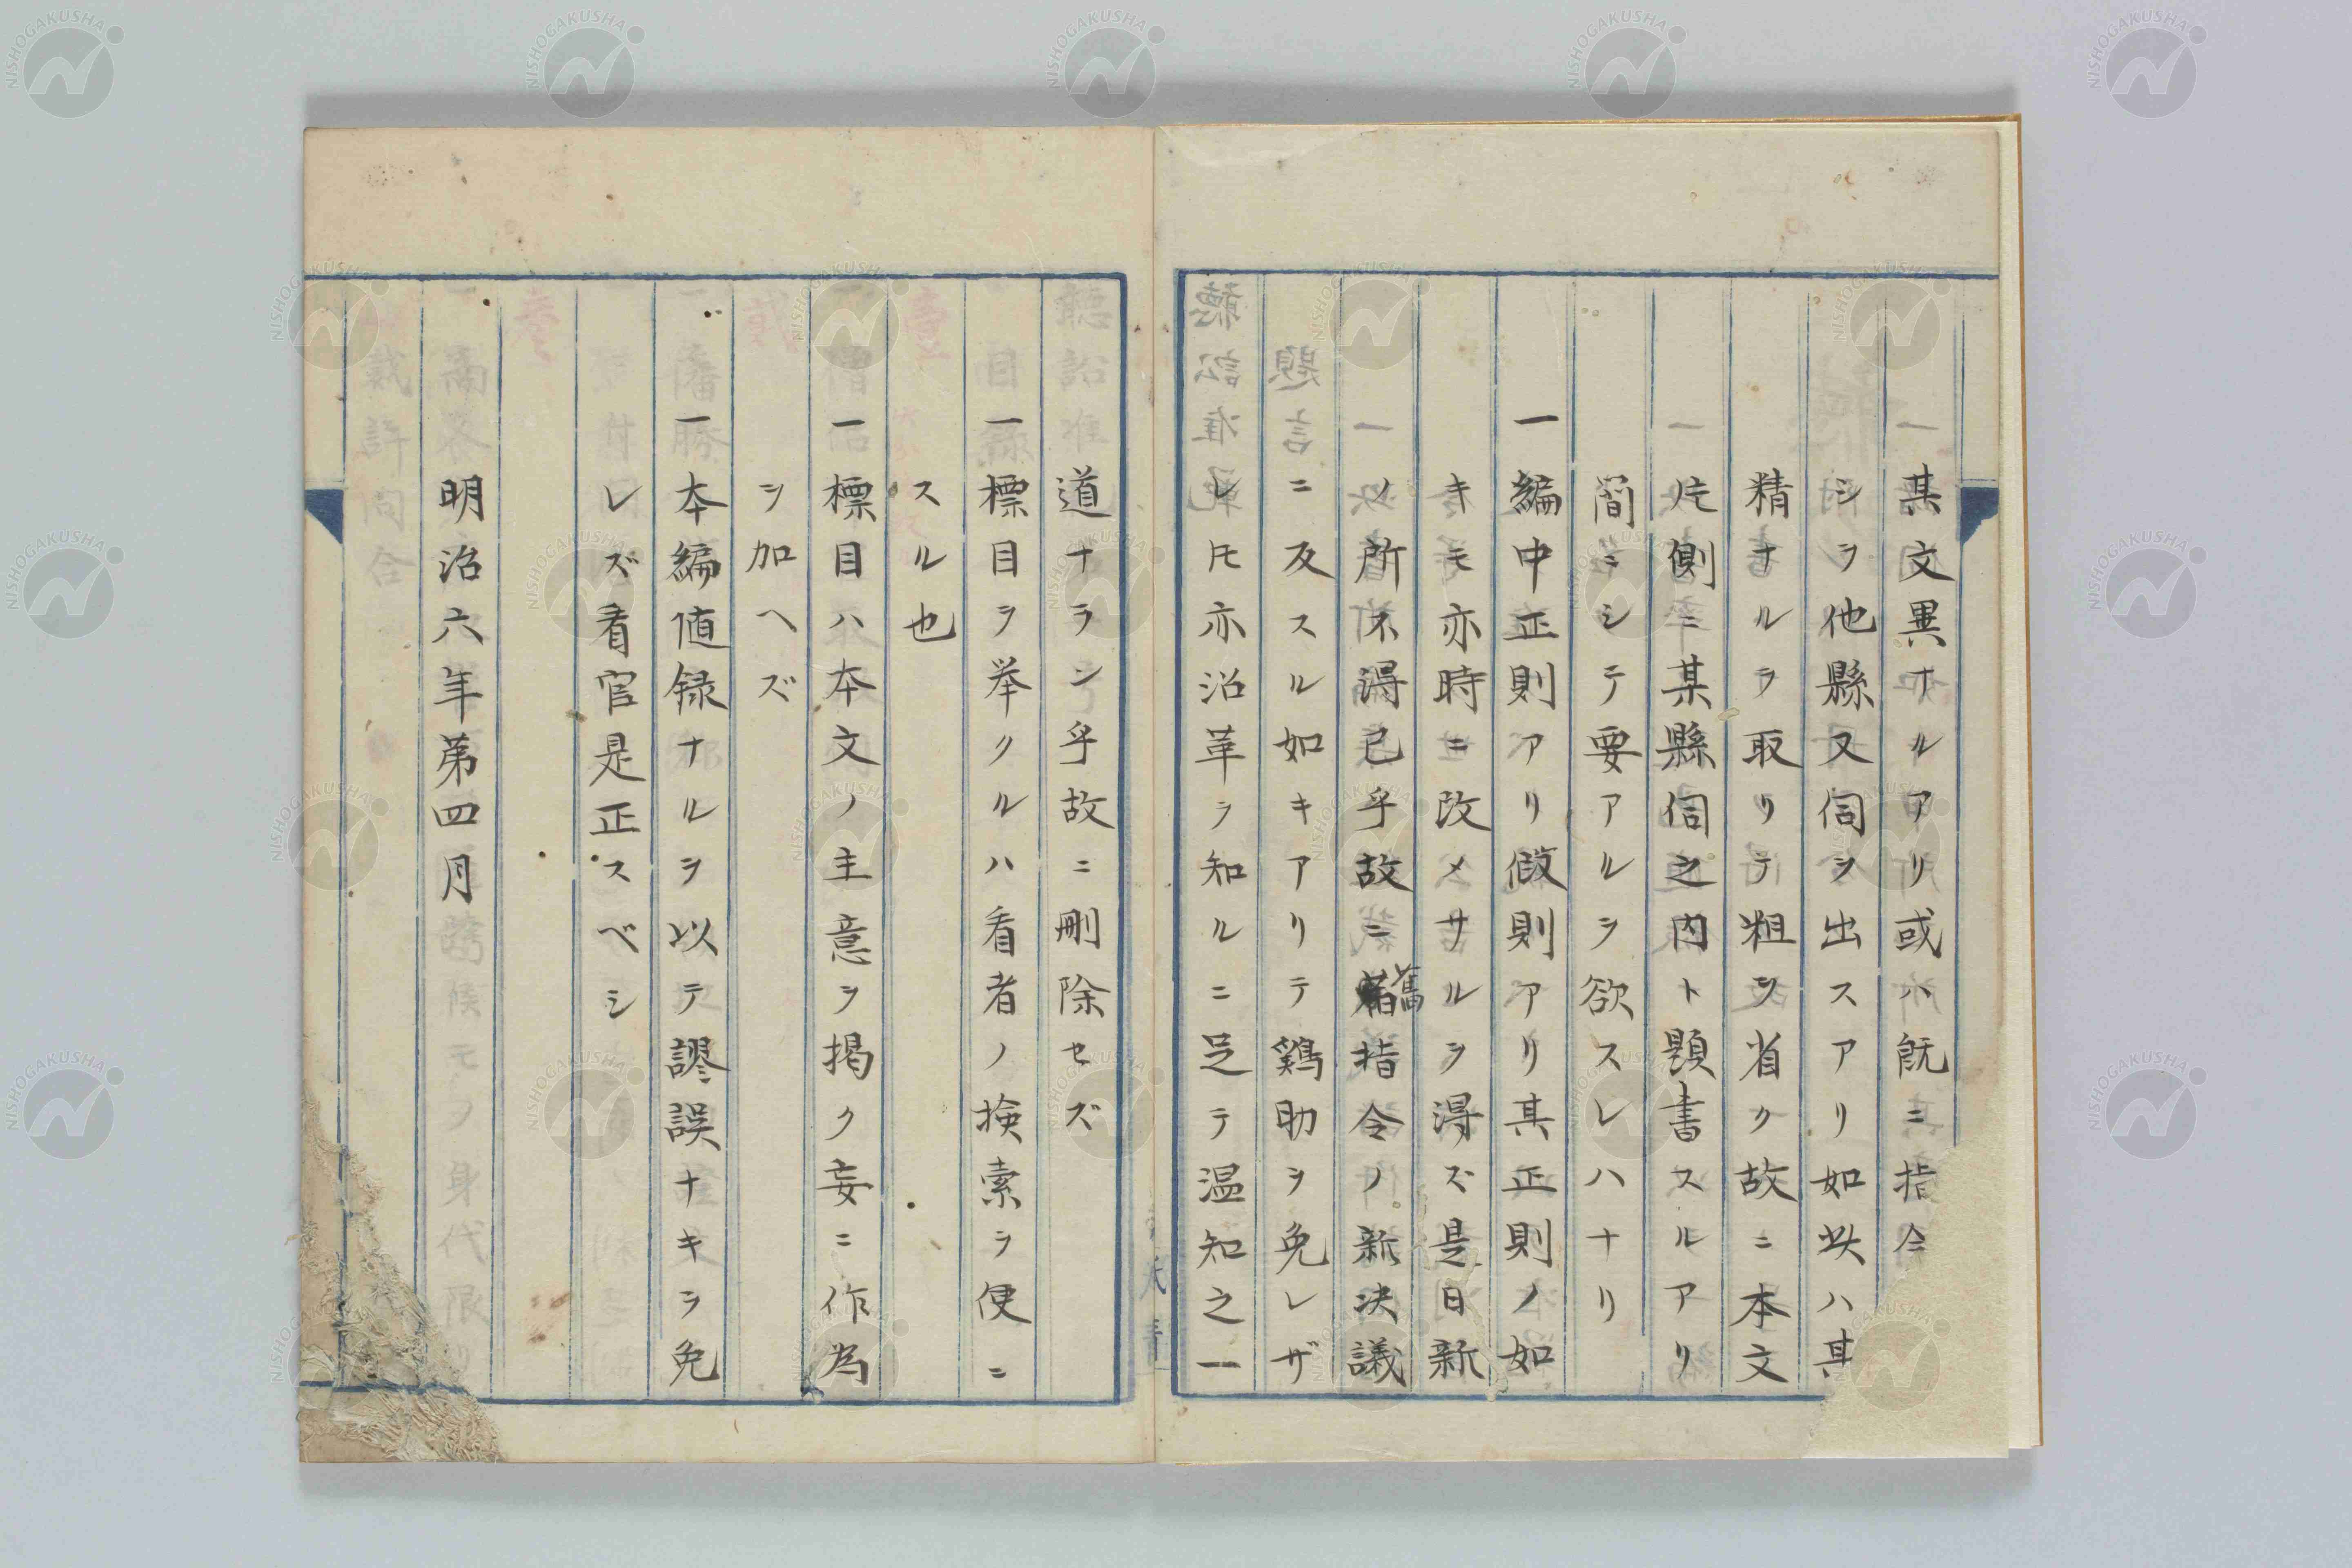 其文異ナルアリ或ハ既ニ指令
シヲ他縣又伺ヲ出スアリ如此ハ其
精ナルヲ取リテ粗ヲ省ク故ニ本文
ノ側ニ某縣伺之内ト題書スルアリ
簡ニシテ要アルヲ欲スレハナリ
一編中正則アリ假則アリ其正則ノ如
キモ亦時ニ改メサルヲ得ズ是日新
ノ所不得已乎故ニ舊指令ノ新決議
ニ反スル如キアリテ鷄肋ヲ免レザ
レ𪜈亦沿革ヲ知ルニ足テ温知之一
道ナラン乎故ニ刪除セズ
一標目ヲ举クルハ看者ノ捡索ヲ便ニ
スル也
一標目ハ本文ノ主意ヲ掲ク妄ニ作為
ヲ加ヘズ
一本編値録ナルヲ以テ謬誤ナキヲ免
レズ看官是正スベシ
明治六年第四月
NISHOGAKUSHA